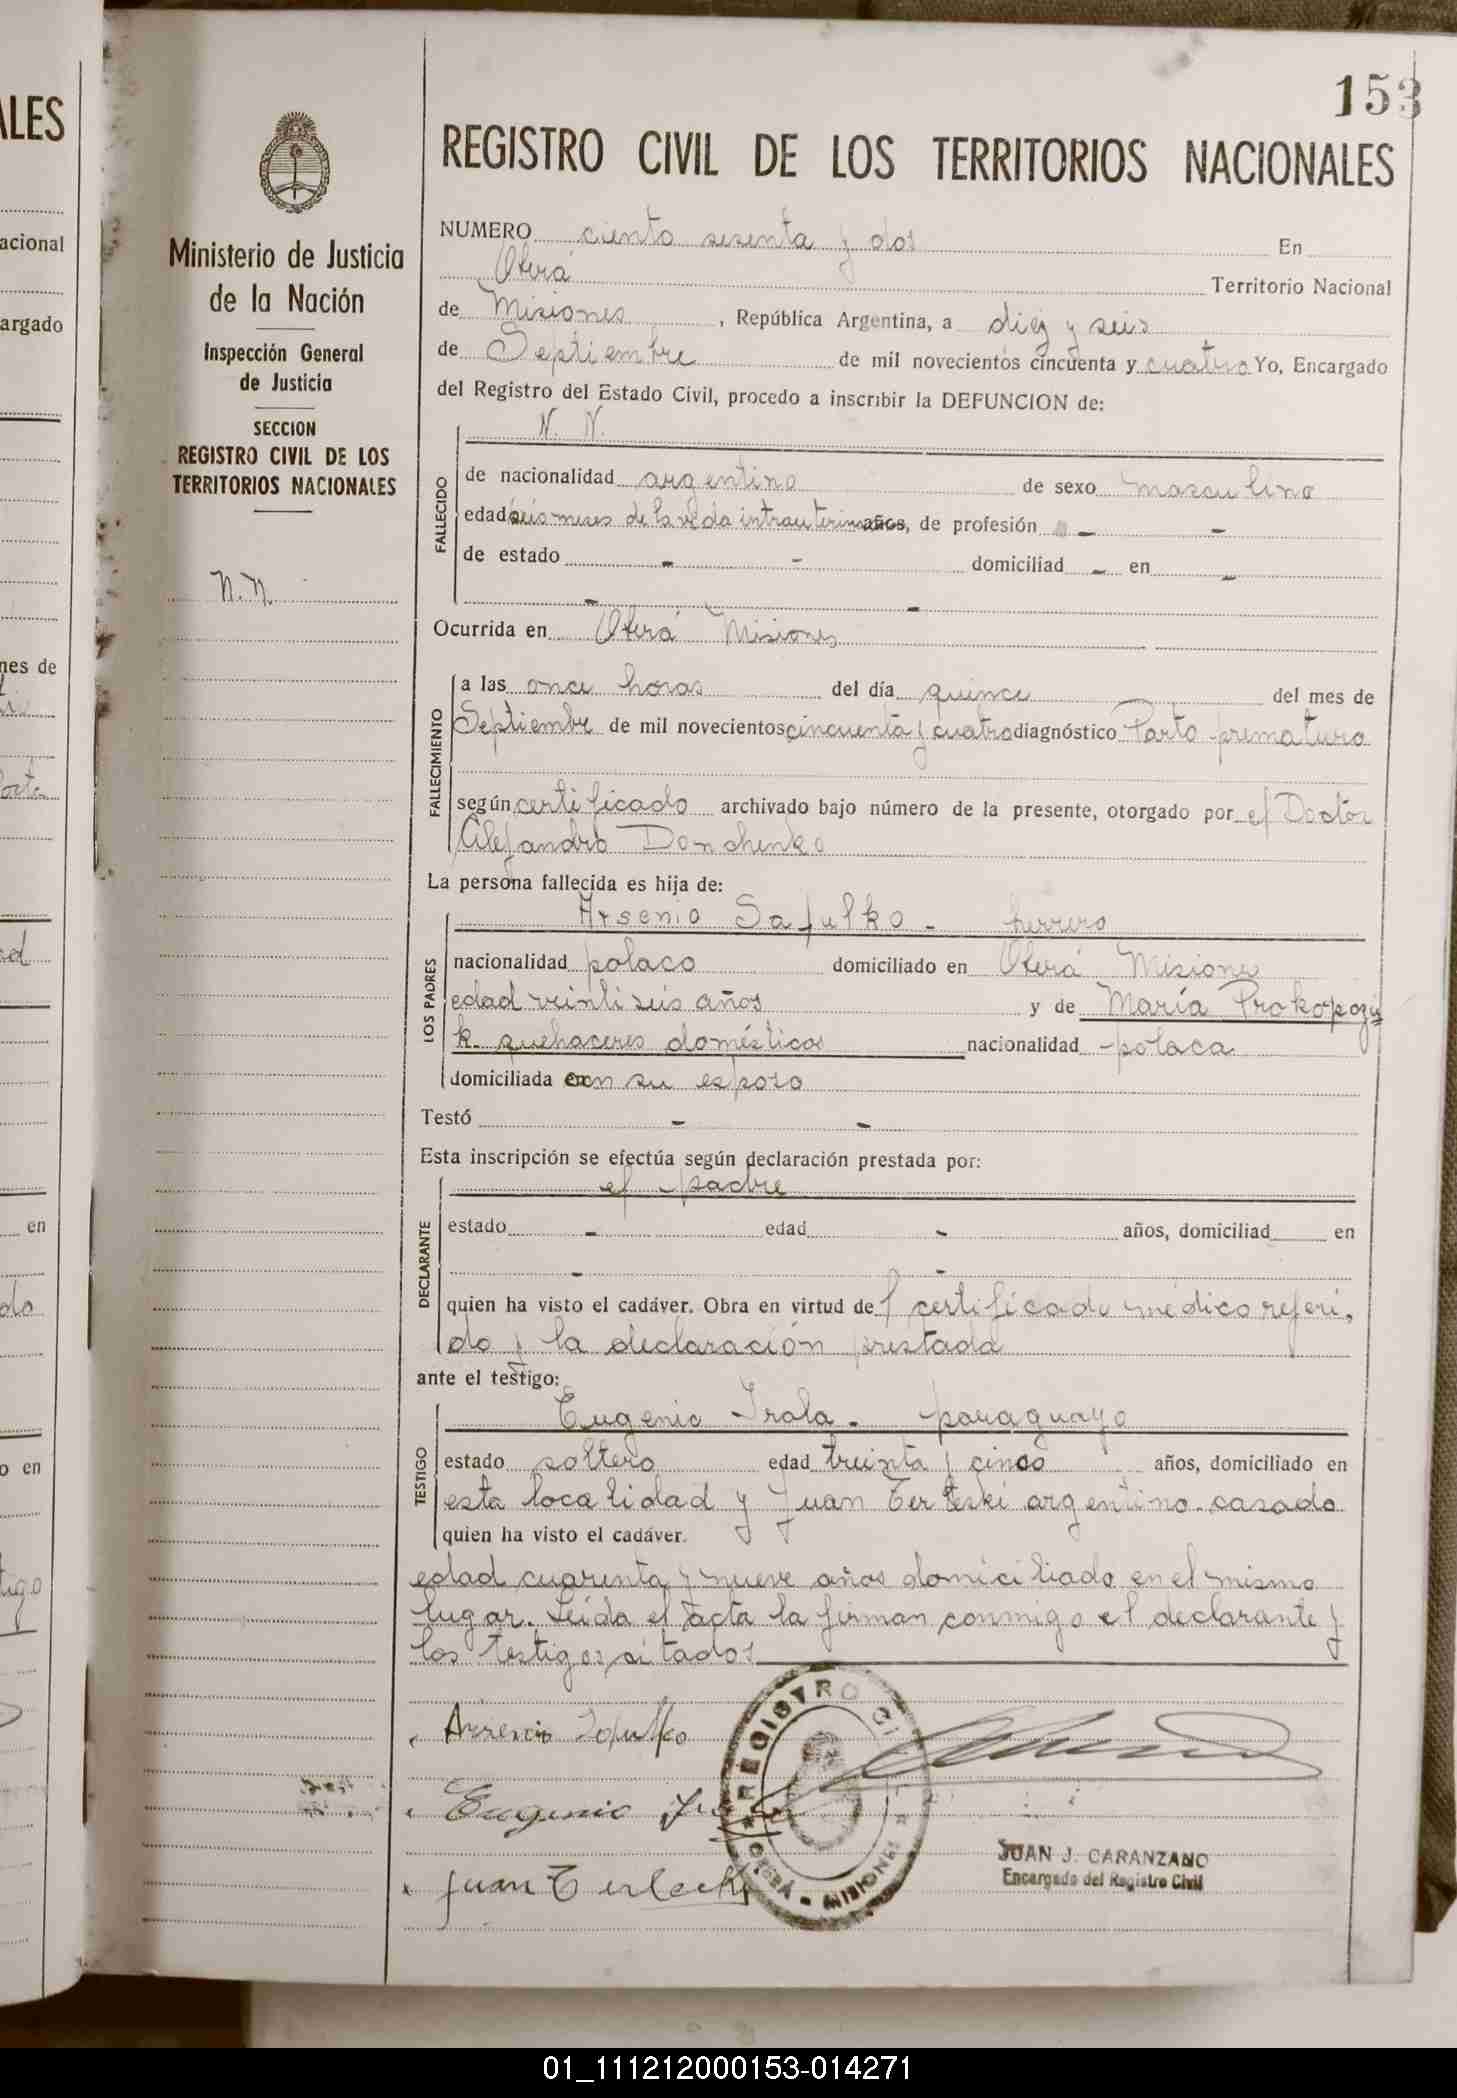 153
REGISTRO CIVIL DE LOS TERRITORIOS NACIONALES
Ministerio de Justicia
de la Nación
Inspección General
de Justicia
SECCION
REGISTRO CIVIL DE LOS
TERRITORIOS NACIONALES
N.N.
NUMERO ciento sesenta y dos En
Oberá Territorio Nacional
de Misiones, República Argentina, a diez y seis
de Septiembre de mil novecientos cincuenta y cuatro Yo, Encargado
del Registro del Estado Civil, procedo a inscribir la DEFUNCION de:
N. N.
FALLECIDO
de nacionalidad argentino de sexo masculino
edad seis meses de la vida intrauterina años, de profesión - -
de estado - - domiciliad - en -
- -
Ocurrida en Oberá Misiones
FALLECIMIENTO
a las once horas del día quince del mes de
Septiembre de mil novecientos cincuenta y cuatro diagnóstico Parto prematuro
según certificado archivado bajo número de la presente, otorgado por el Doctor
Alejandro Donchenko
La persona fallecida es hija de:
LOS PADRES
Arsenio Sapulko - herrero
nacionalidad polaco domiciliado en Oberá Misiones
edad veintiseis años y de María Prokopozy
k. quehaceres domésticos nacionalidad polaca
domiciliada con su esposo
Testó - -
Esta inscripción se efectúa según declaración prestada por:
DECLARANTE
el padre
estado - edad - años, domiciliad en
- -
quien ha visto el cadáver. Obra en virtud del certificado médico referi-
do y la declaración prestada
ante el testigo:
TESTIGO
Eugenio Irala - paraguayo
estado soltero edad treinta y cinco años, domiciliado en
esta localidad y Juan Terleski argentino casado
quien ha visto el cadáver.
edad cuarenta y nueve años domiciliado en el mismo
lugar. Leída el acta la firman conmigo el declarante y
los testigos sitados
Eugenio
Juan Terlecki
REGISTRO CIVIL
OBERÁ - MISIONES
JUAN J. CARANZANO
Encargado del Registro Civil
01_111212000153-014271